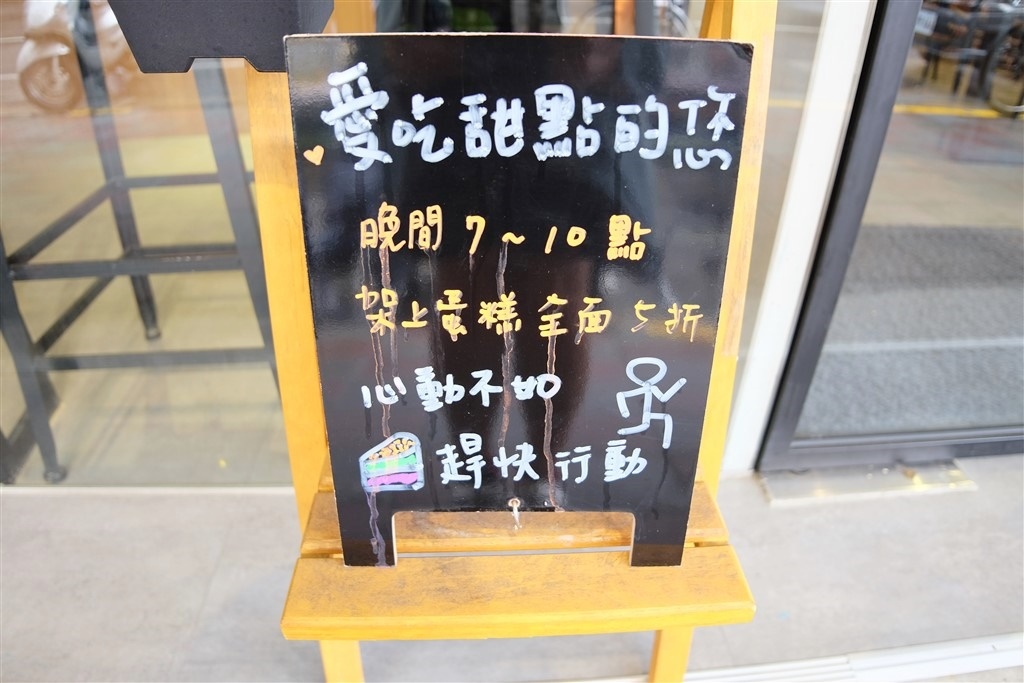 愛吃甜點的您
晚間 7~10 點
架上蛋糕全面 5 折
心動不如
趕快行動